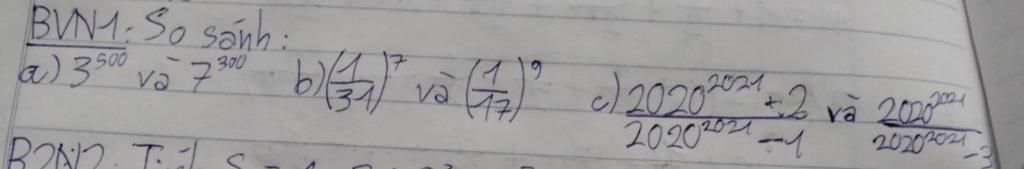 BVN1: So sánh:
a) 3^500 và 7^300 b) (1/31)^7 và (1/17)^9 c) (2020^2021 + 2)/(2020^2021 - 1) và 2020^2021/(2020^2021 - 3)